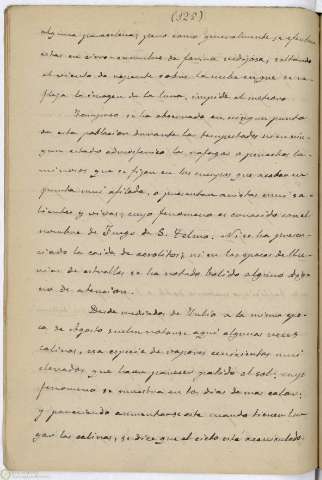 (125)
algunas paraselenas, pero como generalmente se efectuan
estas en circunstancias de forma vedijosa, saltando
el viento de repente sobre la nube en que se re-
fleja la imagen de la luna, impide el meteoro.
Tampoco se ha observado en ningun punto
de esta poblacion durante las tempestades ni en nin-
gun estado atmosferico las rafagas o penachos lu-
minosos que se fijan en los cuerpos que acaban en
punta mui afilada, o presentan aristas mui sa-
lientes y vivas, cuyo fenomeno es conocido con el
nombre de Fuego de S. Telmo. Ni se ha presen-
ciado la caida de aerolitos; ni en las epocas de llu-
vias de estrellas se ha notado habido alguna dig-
na de atencion.
Desde mediados de Julio a la misma epo-
ca de Agosto suelen notarse aqui algunas veces
calinas, esa especie de vapores cenicientos mui
elevados que hacen parecer palido el sol: cuyo
fenomeno se muestra en los dias de mas calor;
y pareciendo aumentarse este cuando tienen lu-
gar las calinas, se dice que el cielo está acalinado.